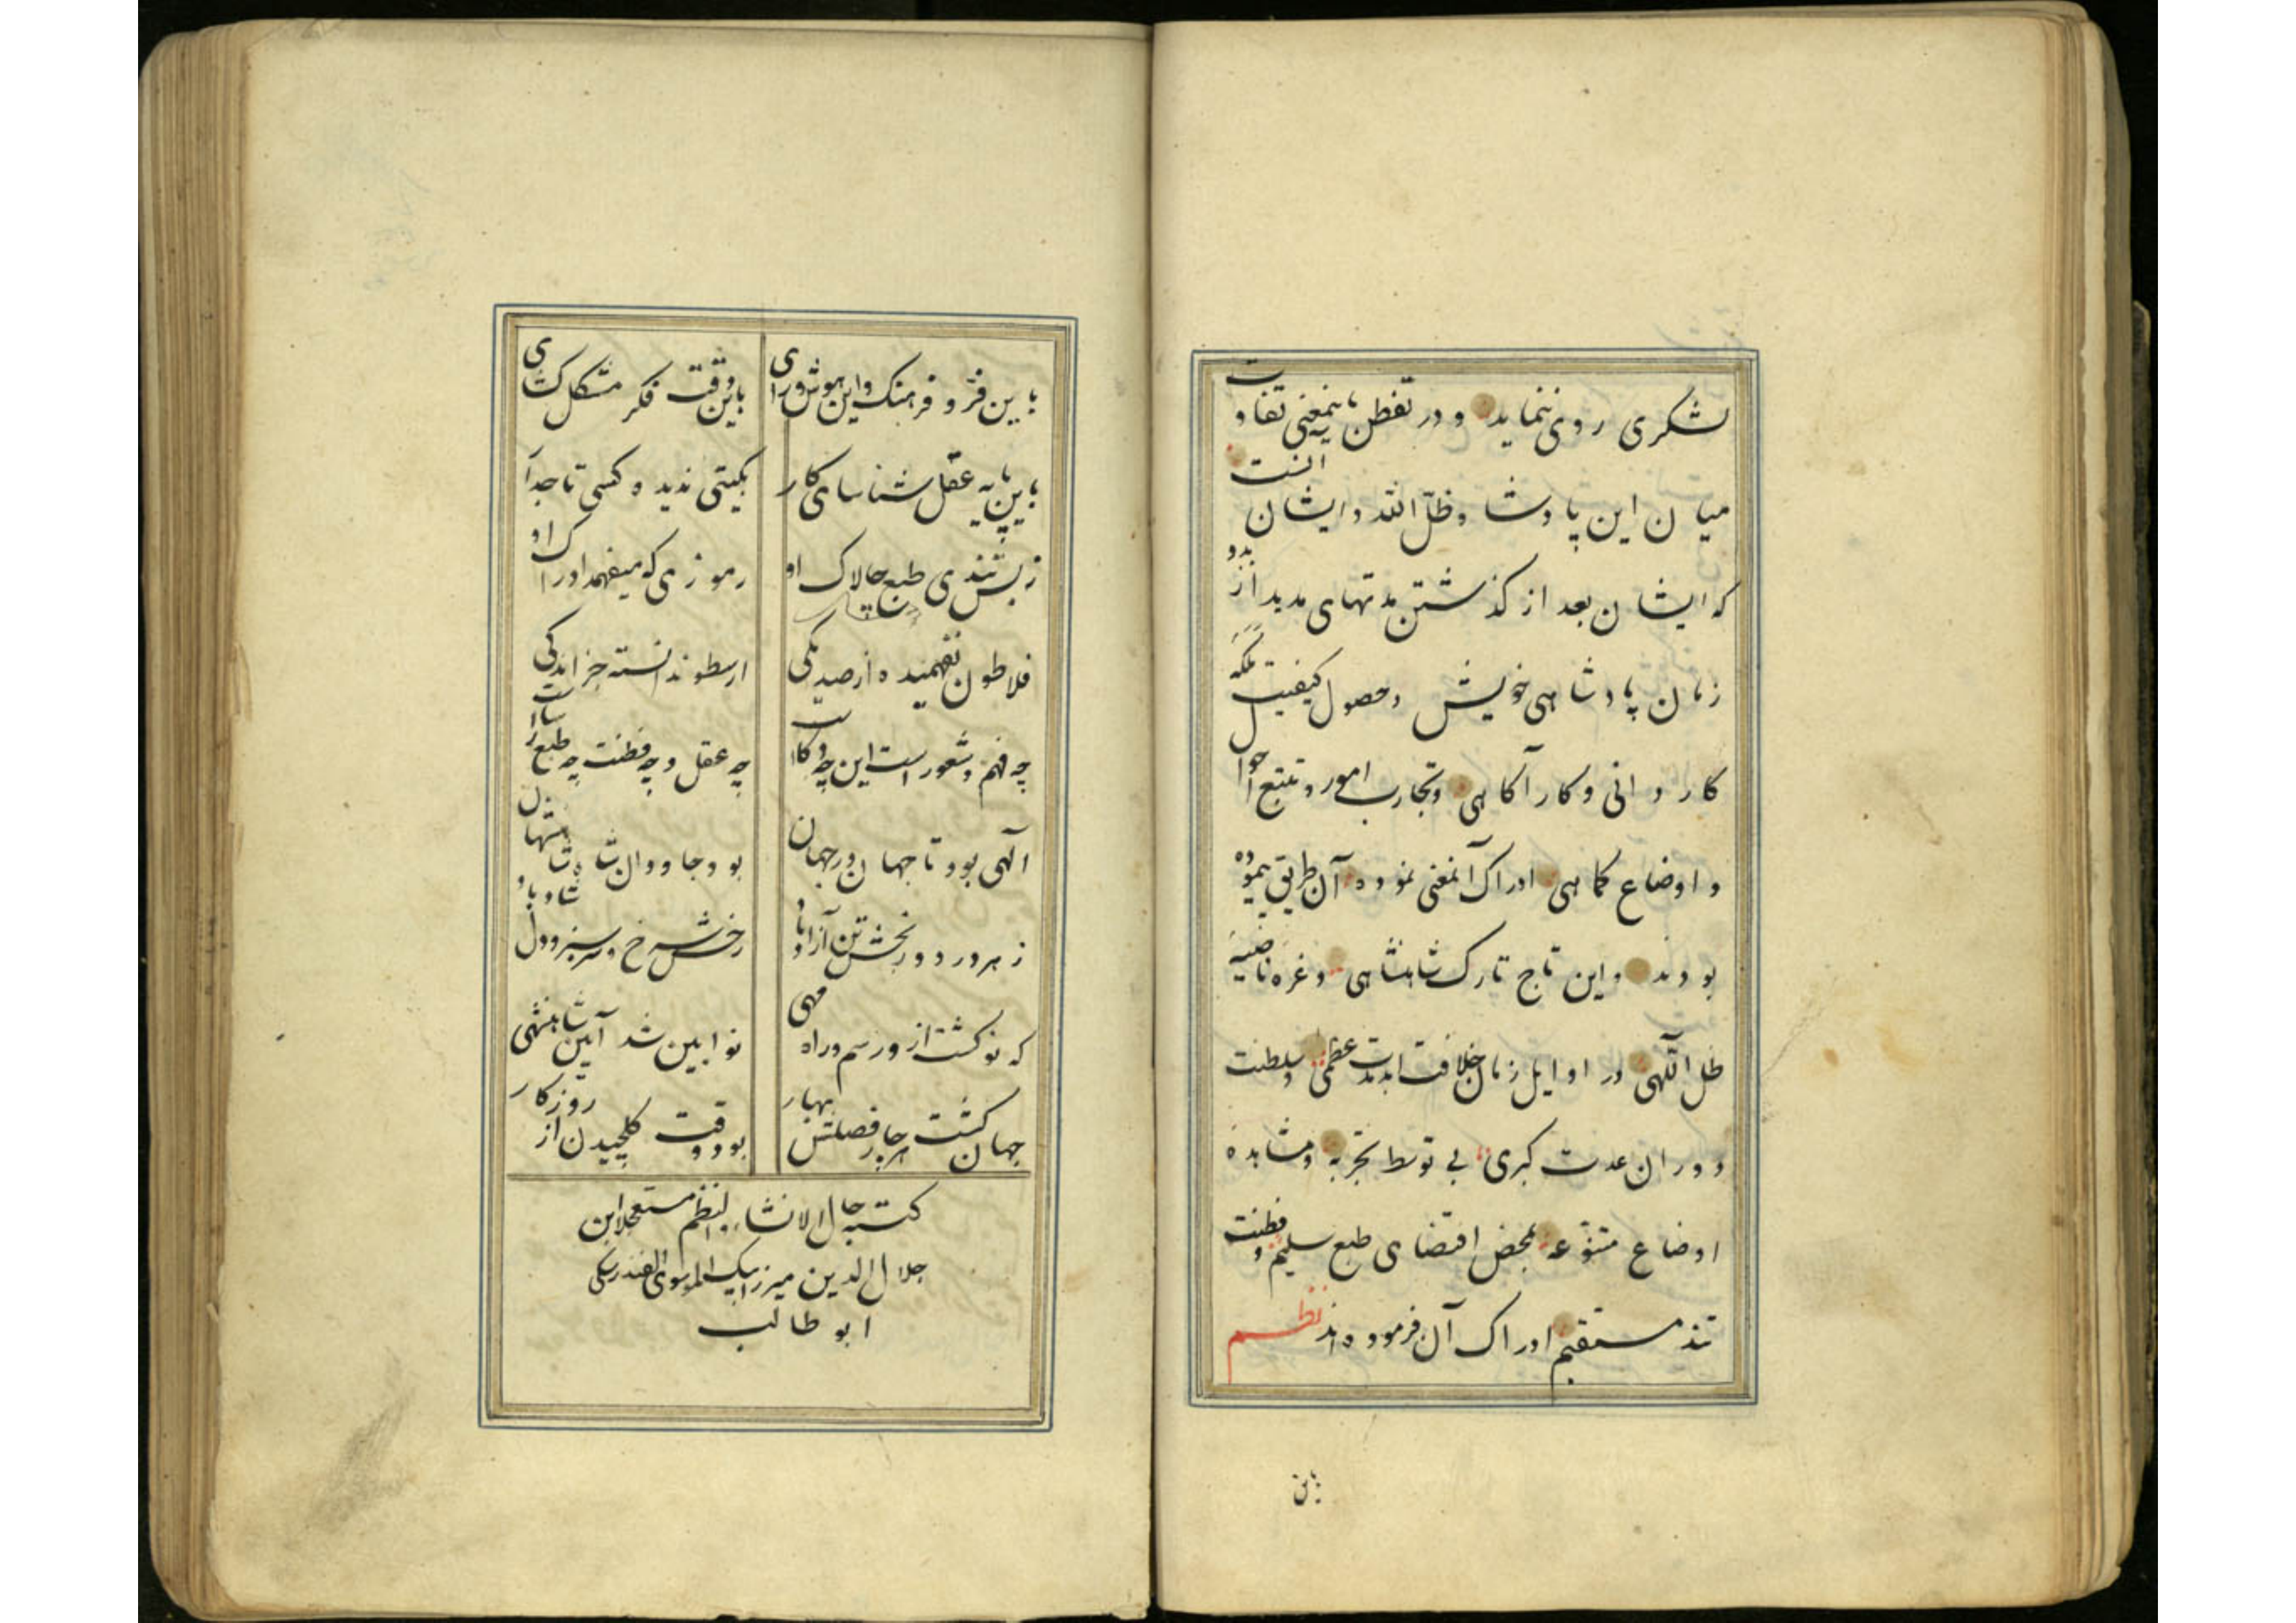 لشکری روی ننماید و در تفطن باینمعنی تفاوت
میان این پادشاه ظل الله و ایشان انست
که ایشان بعد از گذشتن مدتهای مدید از بدو
زمان پادشاهی خویش و حصول کیفیت ملکه
کاردانی و کارآگاهی و تجارب امور و تتبع احوال
و اوضاع کماهی ادراک آنمعنی نموده آن طریق پیموده
بودند و این تاج تارک شاهنشاهی و غره ناصیه
ظل اللهی در اوایل زمان خلافت ابدمدت عظمی و سلطنت
و دوران عدت کبری بی توسط تجربه و مشاهده
اوضاع متنوعه بمحض اقتضای طبع سلیم و فطنت
مستقیم ادراک آن فرموده اند نظم
باین
باین فر و فرهنک و این هوش و رای
باین دقت فکر مشکل کشای
باین پایه عقل شناسای کار
بکیتی ندیده کسی تاجدار
ز بس تندی طبع چالاک او
رموزی که میفهمد ادراک او
فلاطون نفهمیده از صد یکی
ارسطو ندانسته جز اندکی
چه فهم و شعور است این چه ذکاست
چه عقل و چه فطنت چه طبع رساست
الهی بود تا جهان در جهان
بود جاودان شاه شاهنشهان
ز هر درد و رنجش تن آزاد باد
رخش سرخ و سرسبز و دل شاد باد
که نو کشت ازو رسم و راه مهی
نوایین شد آیین شاهنشهی
جهان کشت هر چار فصلش بهار
بود وقت کلچیدن از روزکار
کتبه حال الانشاء و النظم مستعجلا ابن
جلال الدین میرزا بیک الموسوی الفندرسکی
ابو طالب